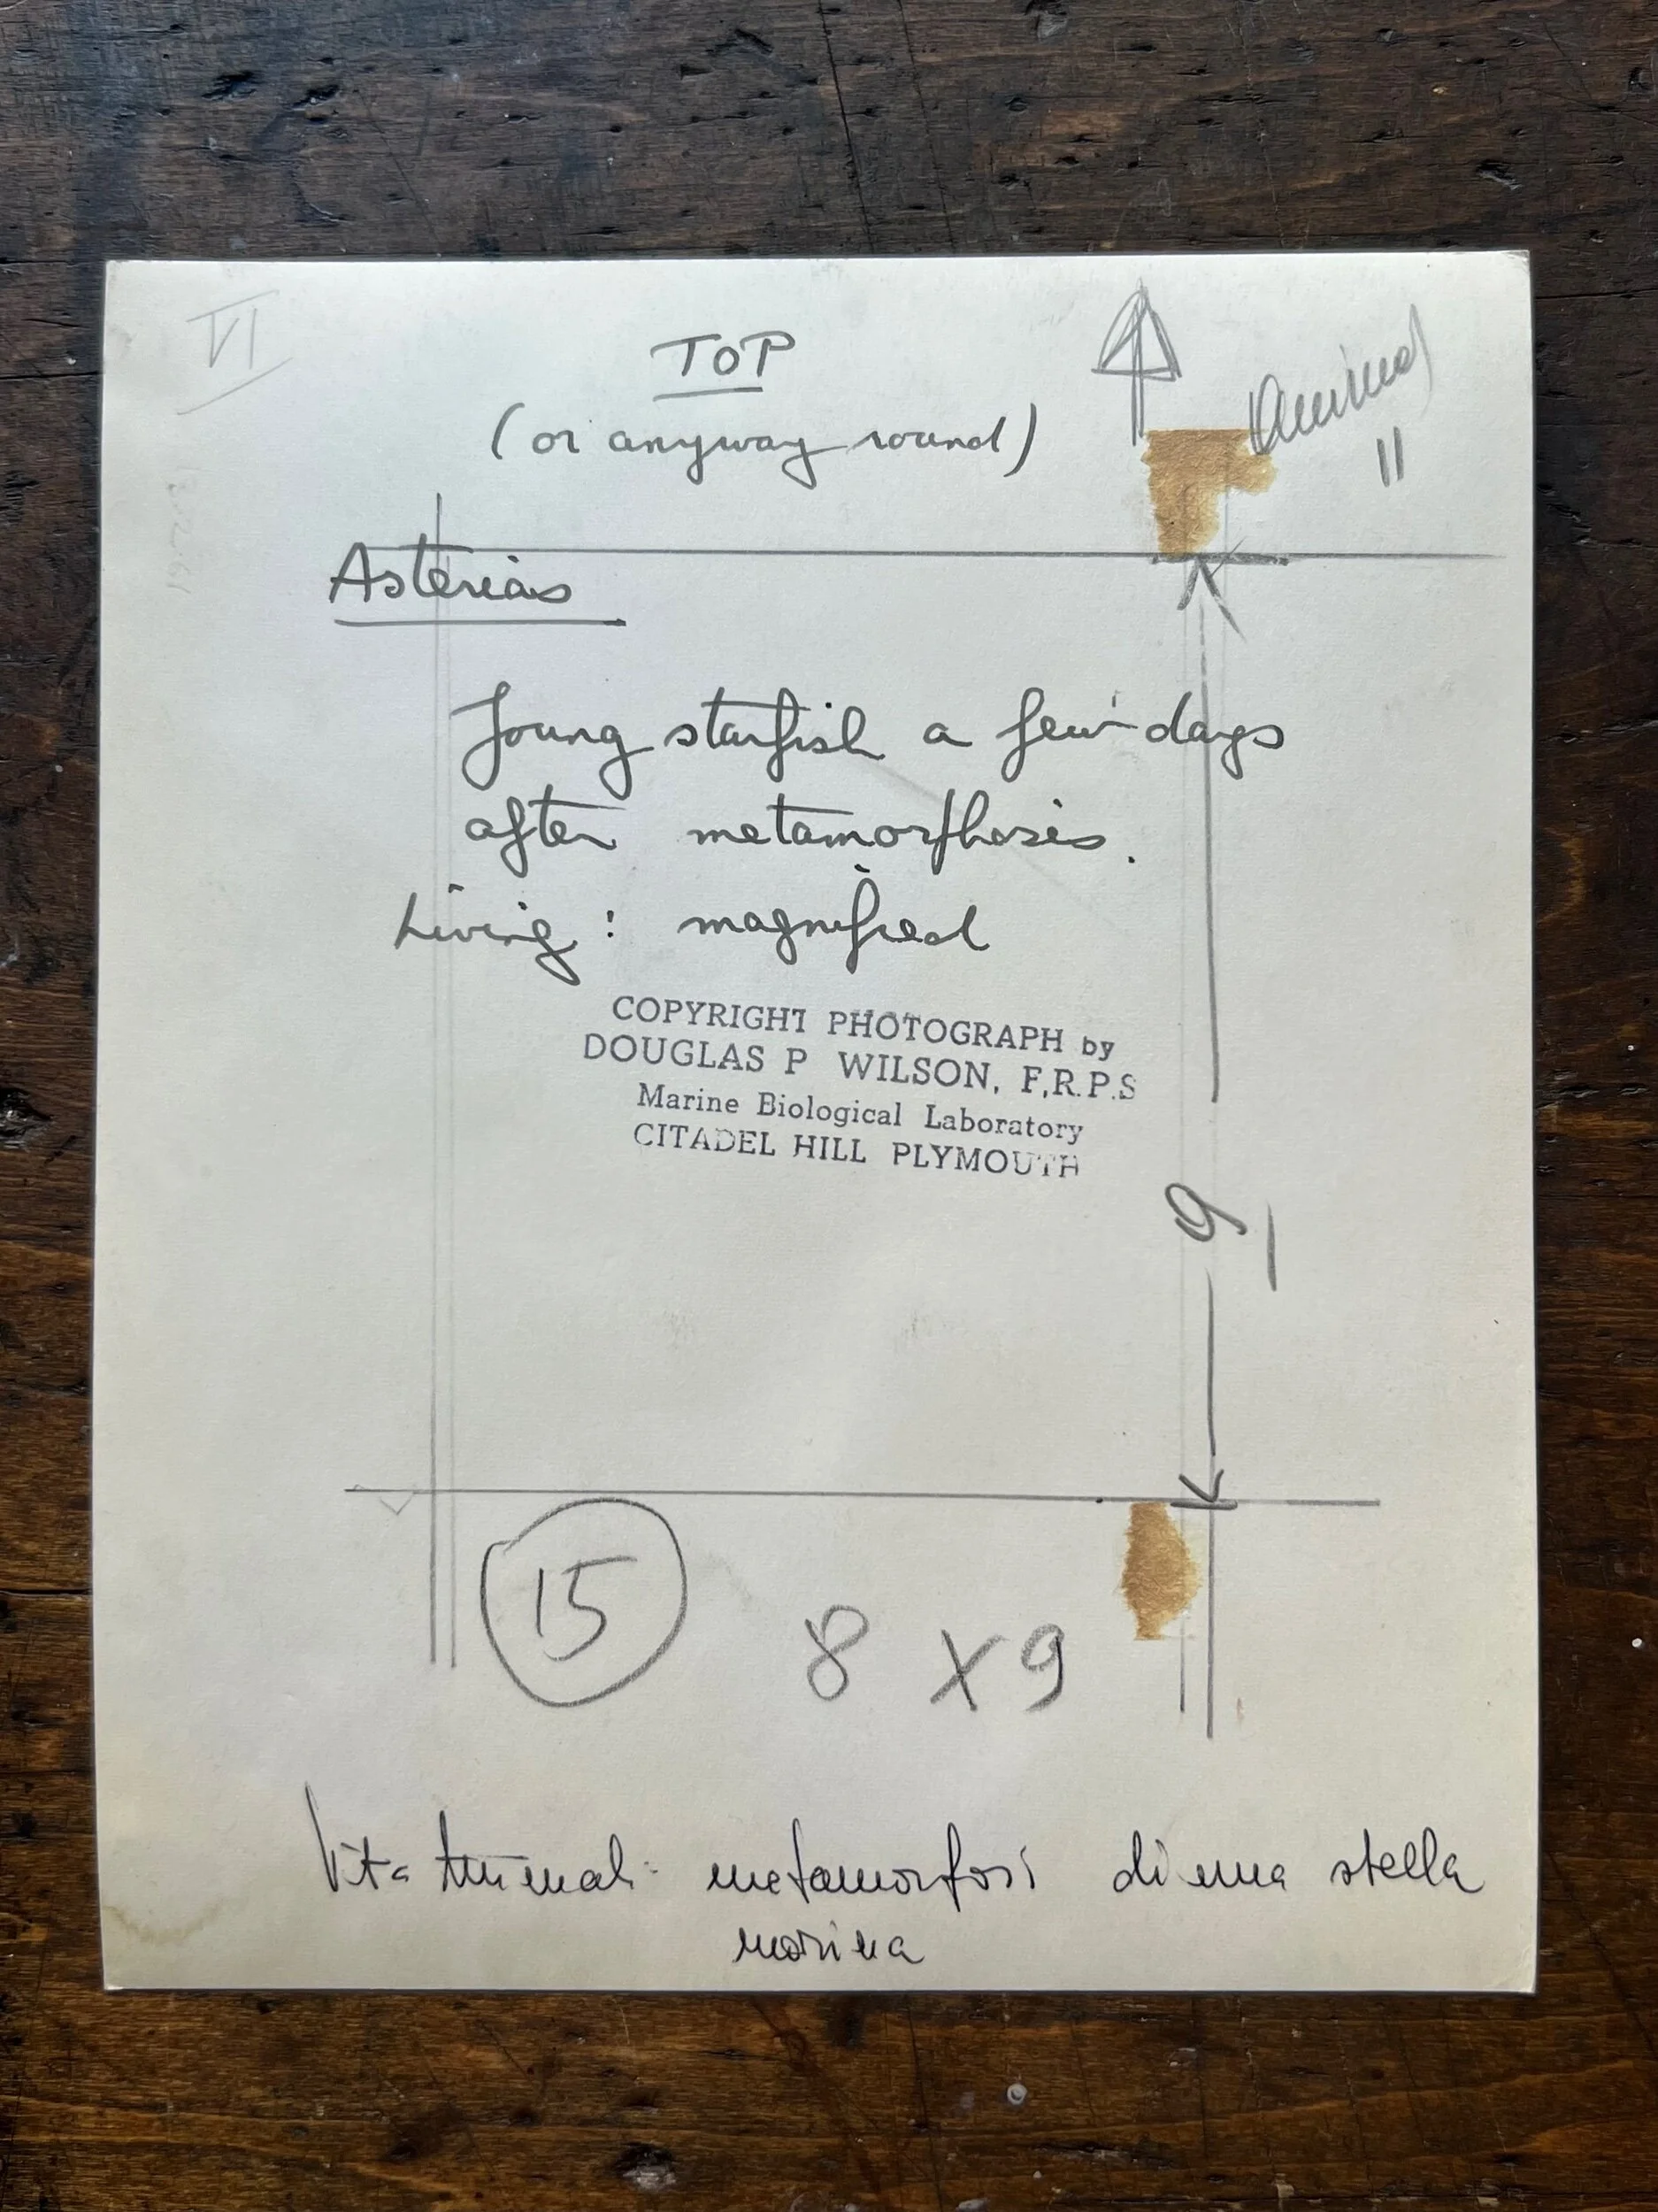 VI
TOP
(or anyway round)
Animal
11
Asterias
Young starfish a few days
after metamorphosis.
Living : magnified
COPYRIGHT PHOTOGRAPH by
DOUGLAS P WILSON, F.R.P.S
Marine Biological Laboratory
CITADEL HILL PLYMOUTH
9
15
8 X 9
Vita animali: metamorfosi di una stella
marina